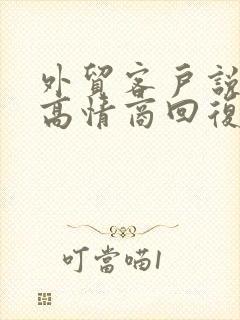 外貿客戶說
高情商回復
叮當喵1